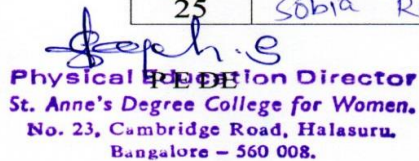 25 Sobia R
Joseph.S
Physical Education Director
PE DE
St. Anne's Degree College for Women.
No. 23, Cambridge Road, Halasuru.
Bangalore – 560 008.